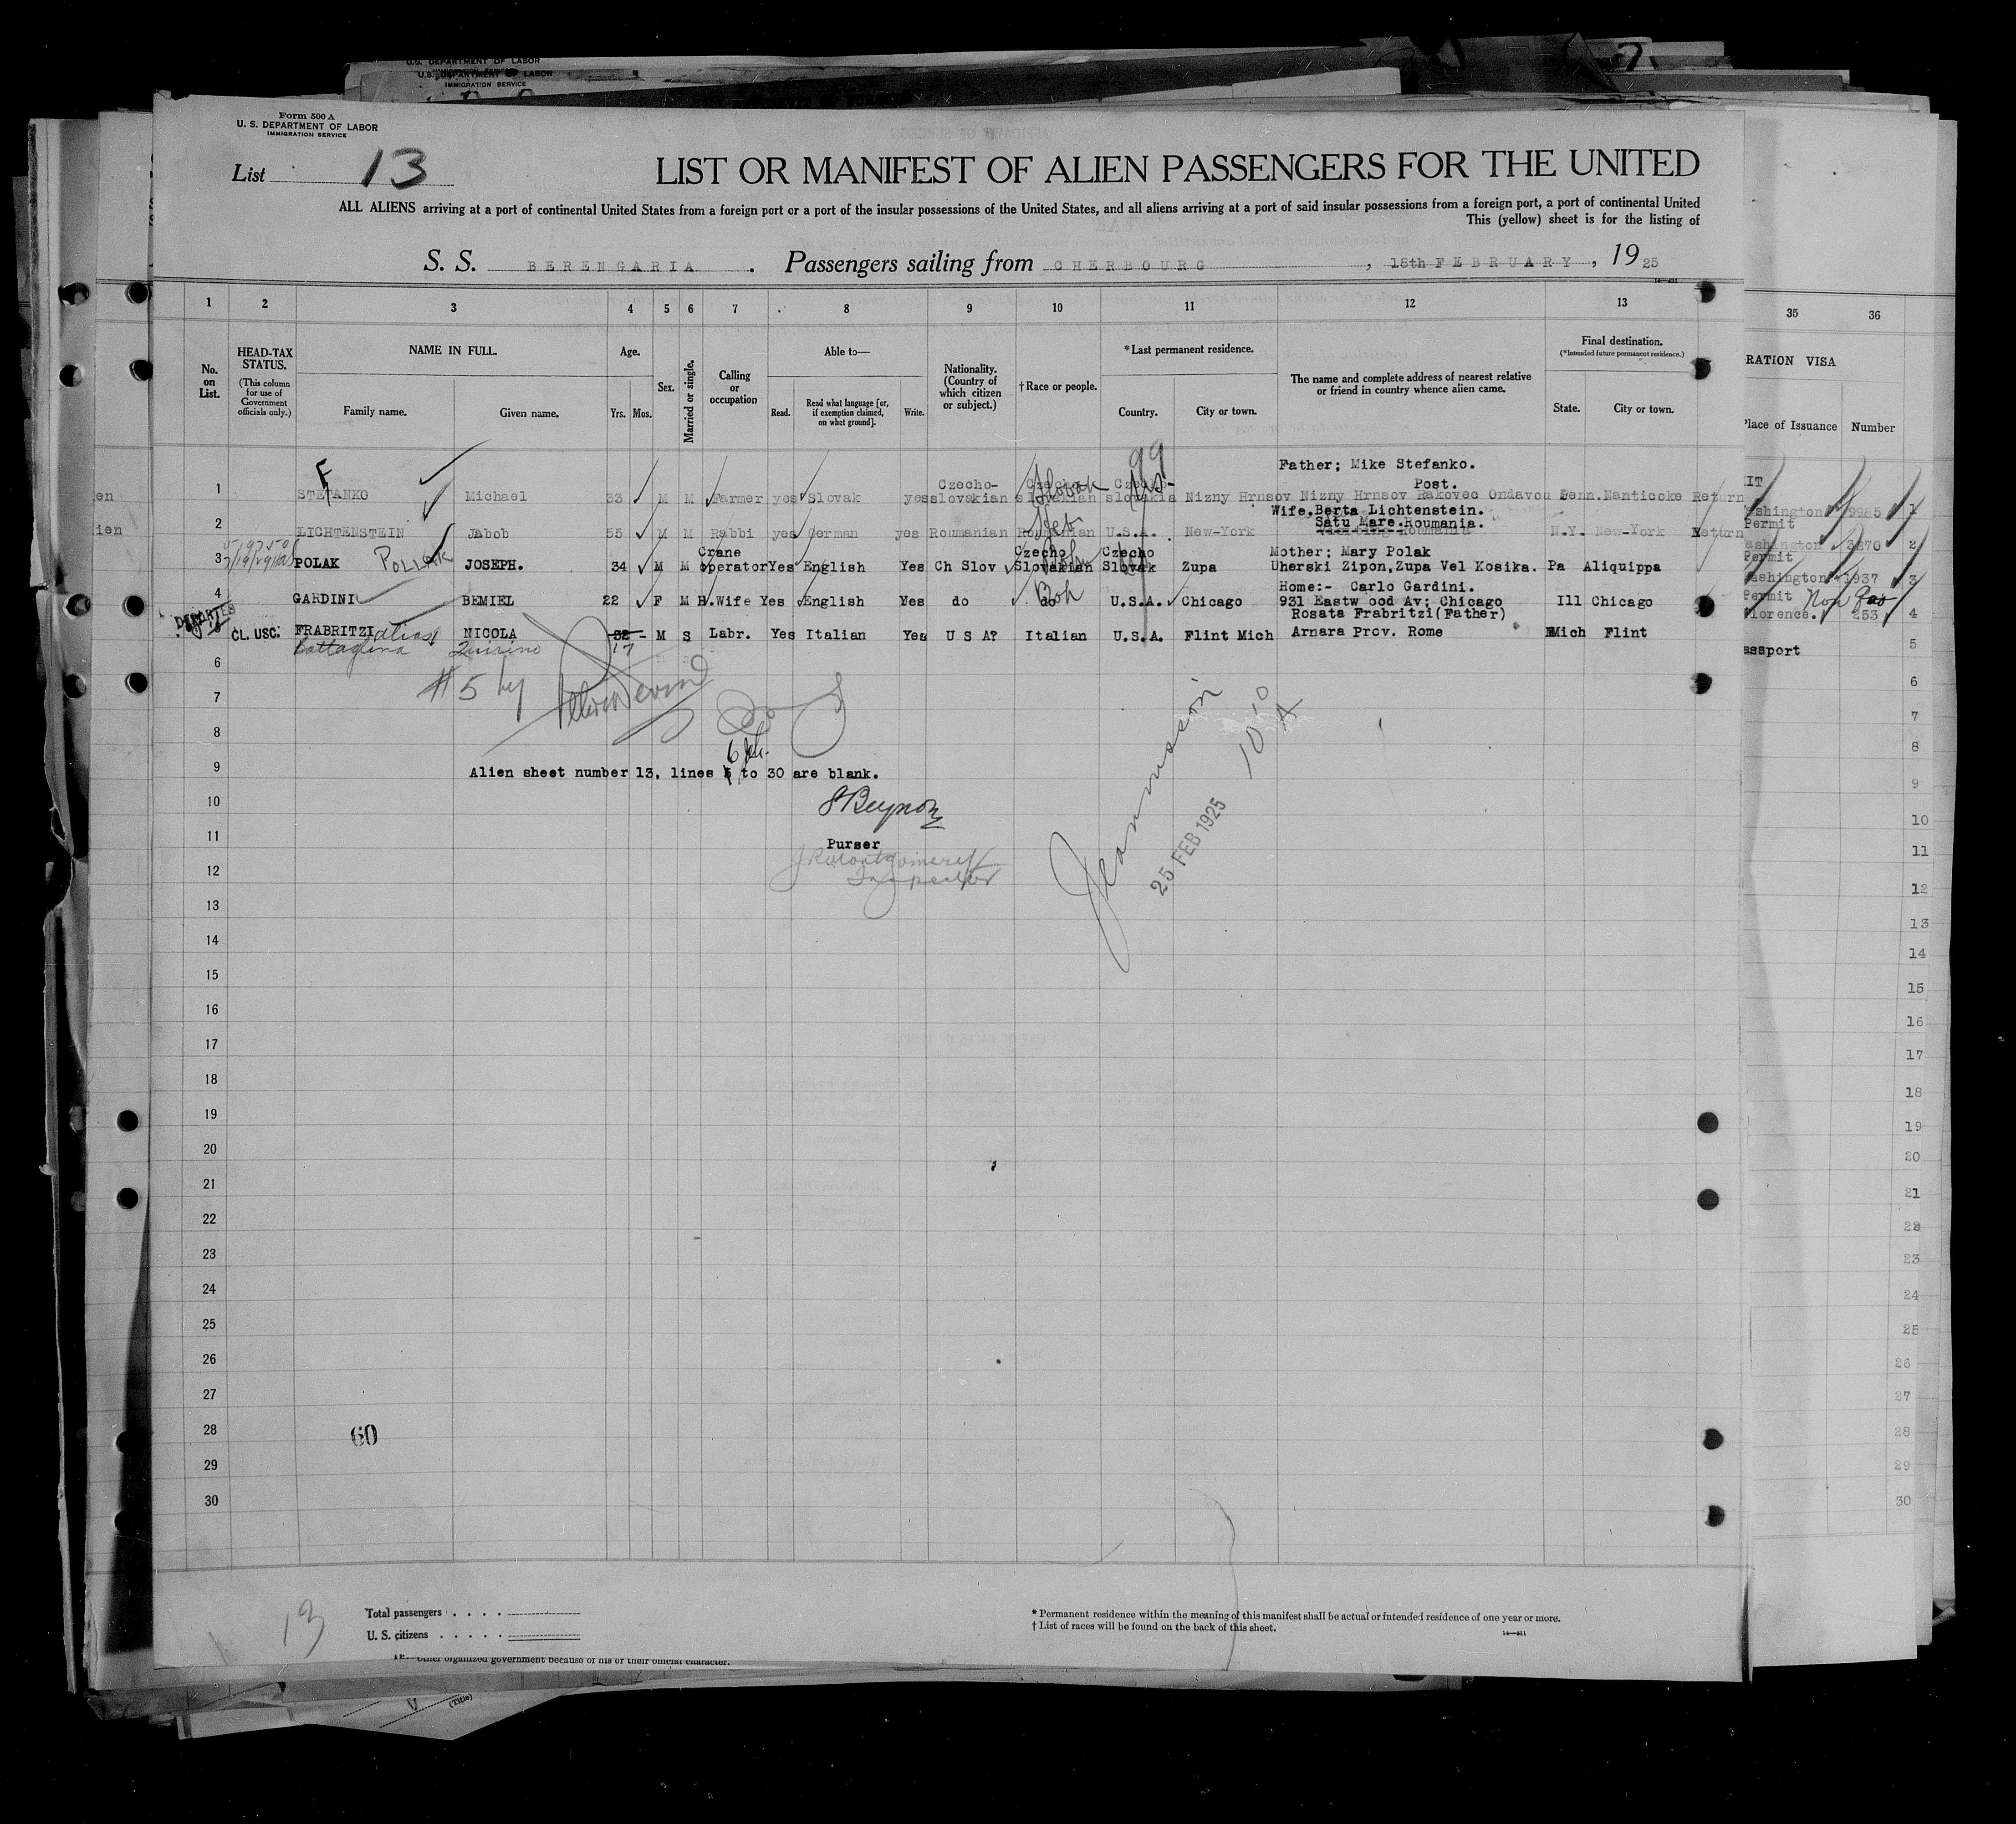 U.S. DEPARTMENT OF LABOR
U.S. DEPARTMENT OF LABOR
IMMIGRATION SERVICE
Form 500 A
U. S. DEPARTMENT OF LABOR
IMMIGRATION SERVICE
List 13
LIST OR MANIFEST OF ALIEN PASSENGERS FOR THE UNITED
ALL ALIENS arriving at a port of continental United States from a foreign port or a port of the insular possessions of the United States, and all aliens arriving at a port of said insular possessions from a foreign port, a port of continental United
This (yellow) sheet is for the listing of
S. S. BERENGARIA. Passengers sailing from CHERBOURG, 18th FEBRUARY, 1925
14—431
1 2 3 4 5 6 7 8 9 10 11 12 13 35 36
No. on List.
HEAD-TAX STATUS.
(This column for use of Government officials only.)
NAME IN FULL.
Family name. Given name.
Age.
Yrs. Mos.
Sex.
Married or single.
Calling or occupation
Able to—
Read. Read what language [or, if exemption claimed, on what ground]. Write.
Nationality. (Country of which citizen or subject.)
† Race or people.
*Last permanent residence.
Country. City or town.
The name and complete address of nearest relative or friend in country whence alien came.
Final destination.
(*Intended future permanent residence.)
State. City or town.
RATION VISA
Place of Issuance Number
99
F
Father; Mike Stefanko.
Czecho- Slovak Post. IT
en 1 STEFANKO Michael 33 M M Farmer yes Slovak yes slovakian slovakian slovakia Nizny Hrnsov Nizny Hrnsov Rakovec Ondavou Penn. Nanticoke Return ashington 9985 1
Wife. Berta Lichtenstein.
Heb Satu Mare. Roumania. Permit
ien 2 LICHTENSTEIN Jabob 55 M M Rabbi yes German yes Roumanian Roumanian U.S.A. New-York Roumania N.Y. New-York Return ashington 3270 2
Crane Czecho Czecho Mother; Mary Polak Permit
3 POLAK POLLAK JOSEPH. 34 M M operator Yes English Yes Ch Slov Slovakian Slovak Zupa Uherski Zipon, Zupa Vel Kosika. Pa Aliquippa ashington 1937 3
Home:- Carlo Gardini. Permit Non Quo
4 GARDINI BEMIEL 22 F M H.Wife Yes English Yes do do Boh U.S.A. Chicago 931 Eastw ood Av; Chicago Ill Chicago lorence. 253 4
Rosata Frabritzi(Father)
DEPORTED CL. USC. FRABRITZI alias NICOLA 32 M S Labr. Yes Italian Yes U S A? Italian U.S.A. Flint Mich Arnara Prov. Rome Mich Flint 5
Battaglina Quirino 17 assport
6 6
#5 by
7 7
8 8
6
9 Alien sheet number 13, lines 5 to 30 are blank. 9
10 10
11 Purser 11
J R Montgomery
12 Inspector 12
10 10 A
25 FEB 1925
13 13
14 14
15 15
16 16
17 17
18 18
19 19
20 20
21 21
22 22
23 23
24 24
25 25
26 26
27 27
28 60 28
29 29
30 30
13
Total passengers
U. S. citizens
* Permanent residence within the meaning of this manifest shall be actual or intended residence of one year or more.
† List of races will be found on the back of this sheet.
14—431
other organized government because of his or their official character.
(Title)